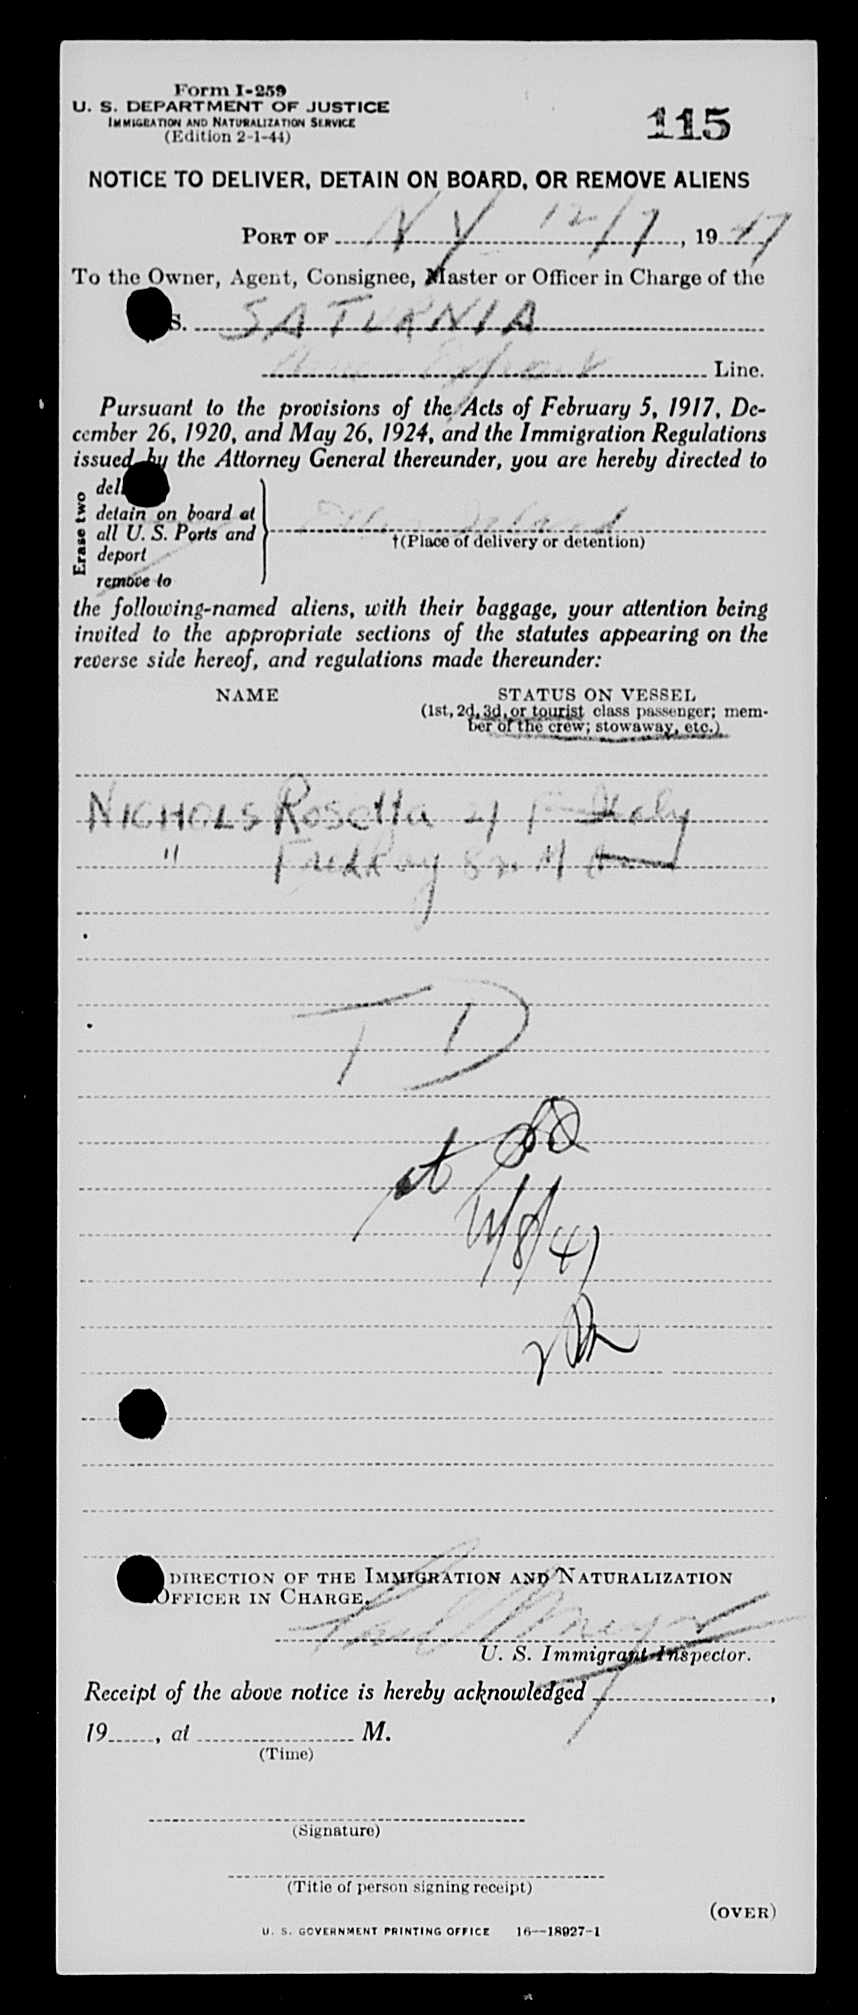 Form I-259
U. S. DEPARTMENT OF JUSTICE
IMMIGRATION AND NATURALIZATION SERVICE
(Edition 2-1-44)
115
NOTICE TO DELIVER, DETAIN ON BOARD, OR REMOVE ALIENS
PORT OF NY 12/7, 1947
To the Owner, Agent, Consignee, Master or Officer in Charge of the
S. SATURNIA
Line.
Pursuant to the provisions of the Acts of February 5, 1917, De-
cember 26, 1920, and May 26, 1924, and the Immigration Regulations
issued by the Attorney General thereunder, you are hereby directed to
Erase two
del
detain on board at
all U. S. Ports and
deport
remove to
Ellis Island
†(Place of delivery or detention)
the following-named aliens, with their baggage, your attention being
invited to the appropriate sections of the statutes appearing on the
reverse side hereof, and regulations made thereunder:
NAME
STATUS ON VESSEL
(1st, 2d, 3d, or tourist class passenger; mem-
ber of the crew; stowaway, etc.)
NICHOLS Rosetta 21 F Italy
" Fredk
TD
12/8/47
DIRECTION OF THE IMMIGRATION AND NATURALIZATION
OFFICER IN CHARGE.
U. S. Immigrant Inspector.
Receipt of the above notice is hereby acknowledged ,
19 , at M.
(Time)
(Signature)
(Title of person signing receipt)
(OVER)
U. S. GOVERNMENT PRINTING OFFICE 16—18927-1